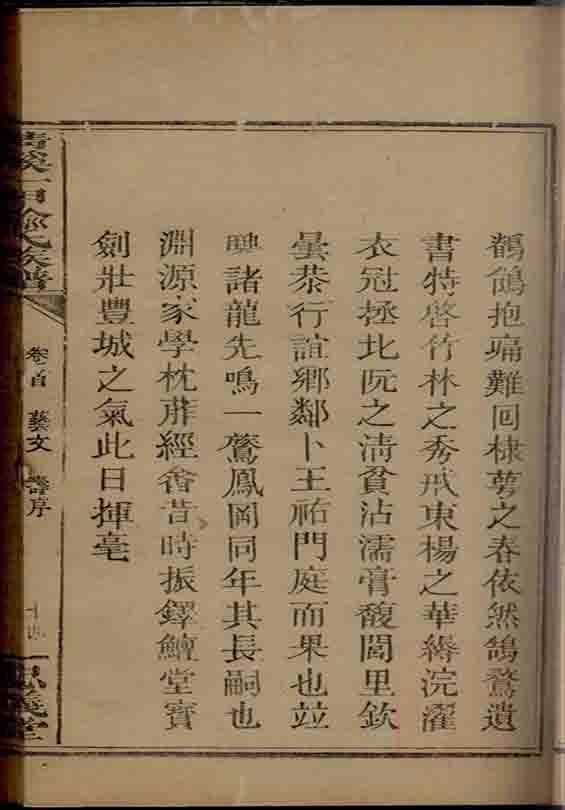 鶺鴒抱痛難回棣萼之春依然鵠鶩遺
書特啓竹林之秀戒東楊之華縟浣濯
衣冠拯北阮之淸貧沾濡膏馥閭里欽
曇恭行誼鄉鄰卜王祐門庭而果也竝
興諸龍先鳴一鶩鳳岡同年其長嗣也
淵源家學枕葄經畬昔時振鐸鱣堂寳
劍壯豐城之氣此日揮毫
余氏族譜
卷首 藝文 壽序
十四
義堂